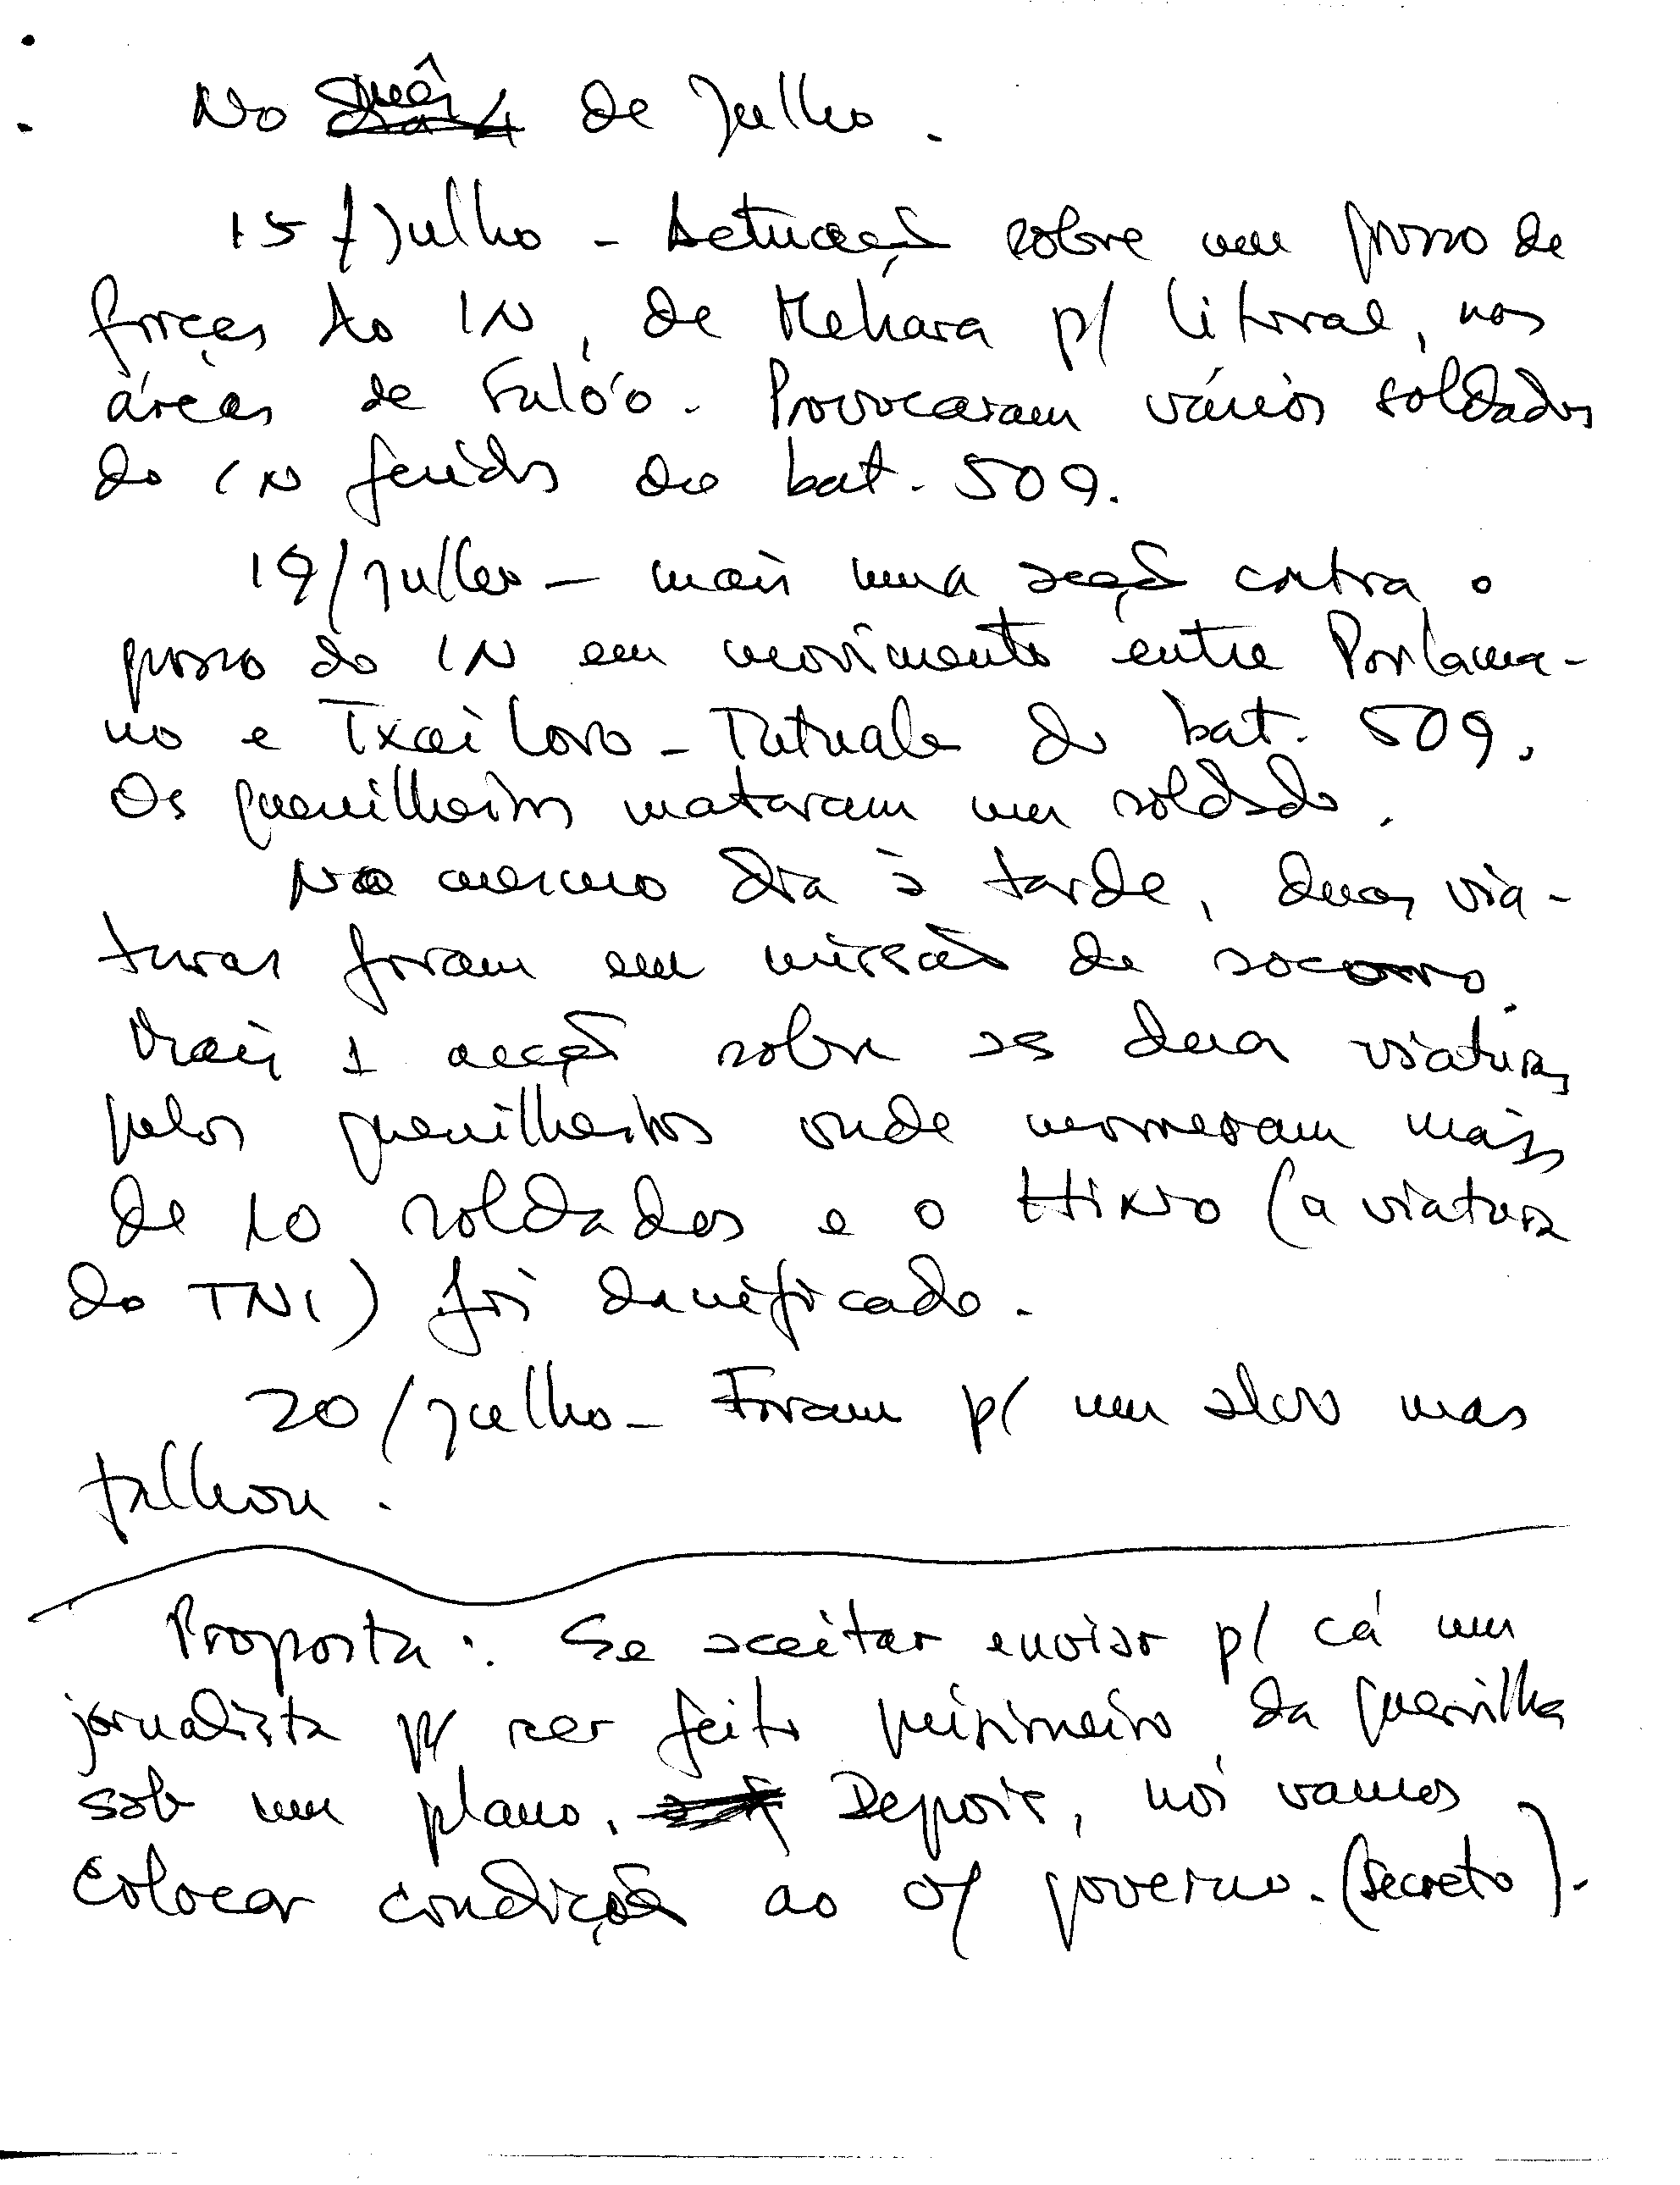 No mês de Julho.
15/Julho - Actuação sobre um grosso de
forças do IN, de Mehara p/ litoral, nos
áreas de Fulóo. Provocaram vários soldados
do IN feridos do bat. 509.
19/Julho - mais uma acção contra o
grosso do IN em movimento entre Porlama-
no e Txailoro - Tutuala do bat. 509.
Os guerrilheiros mataram um soldado.
No mesmo dia à tarde, duas via-
turas foram em missão de socorro.
Mais 1 acção sobre as duas viaturas
pelos guerrilheiros onde morreram mais
de 10 soldados e o Hino (a viatura
do TNI) foi danificado.
20/Julho - Foram p/ um alvo mas
falhou.
Proposta: Se aceitar enviar p/ cá um
jornalista p/ ser feito prisioneiro da guerrilha
sob um plano. Depois, nós vamos
colocar condição ao o/ governo. (Secreto).